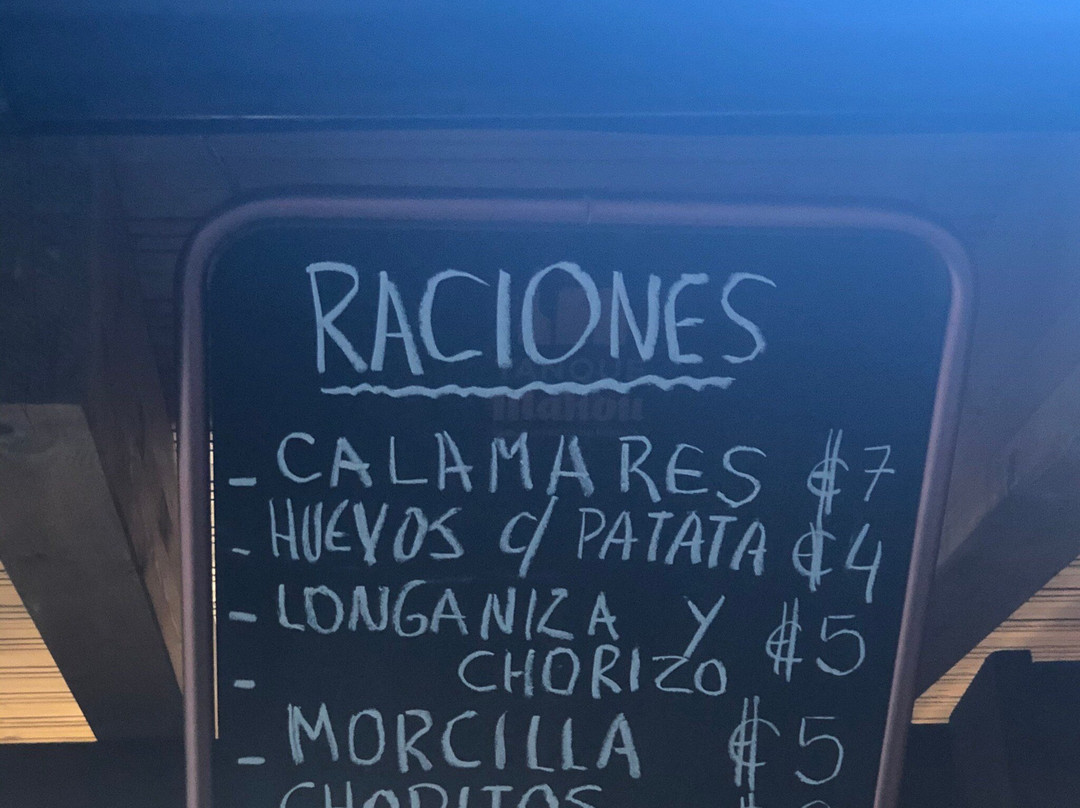 RACIONES
- CALAMARES ₡7
- HUEVOS c/ PATATA ₡4
- LONGANIZA Y ₡5
- CHORIZO
- MORCILLA ₡5
CHORITOS